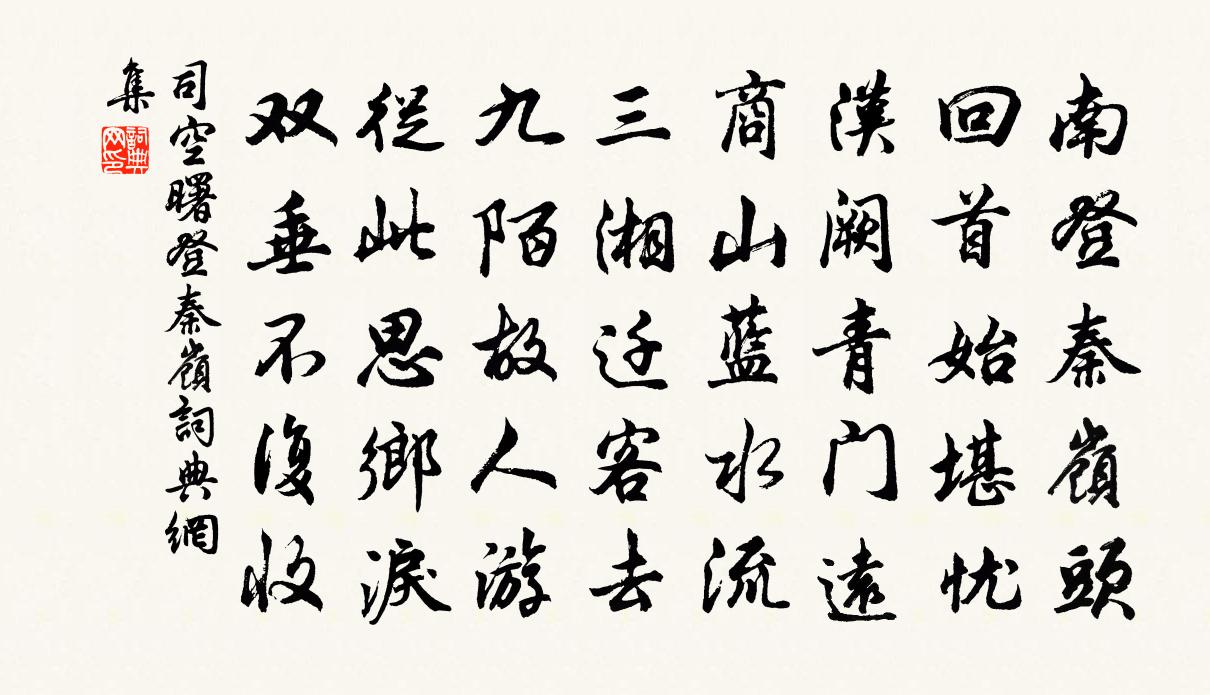 南登秦嶺頭
回首始堪忧
漢阙青门遠
商山蓝水流
三湘迁客去
九陌故人游
從此思鄉淚
双垂不復收
司空曙登秦嶺詞典網
集
詞典网印